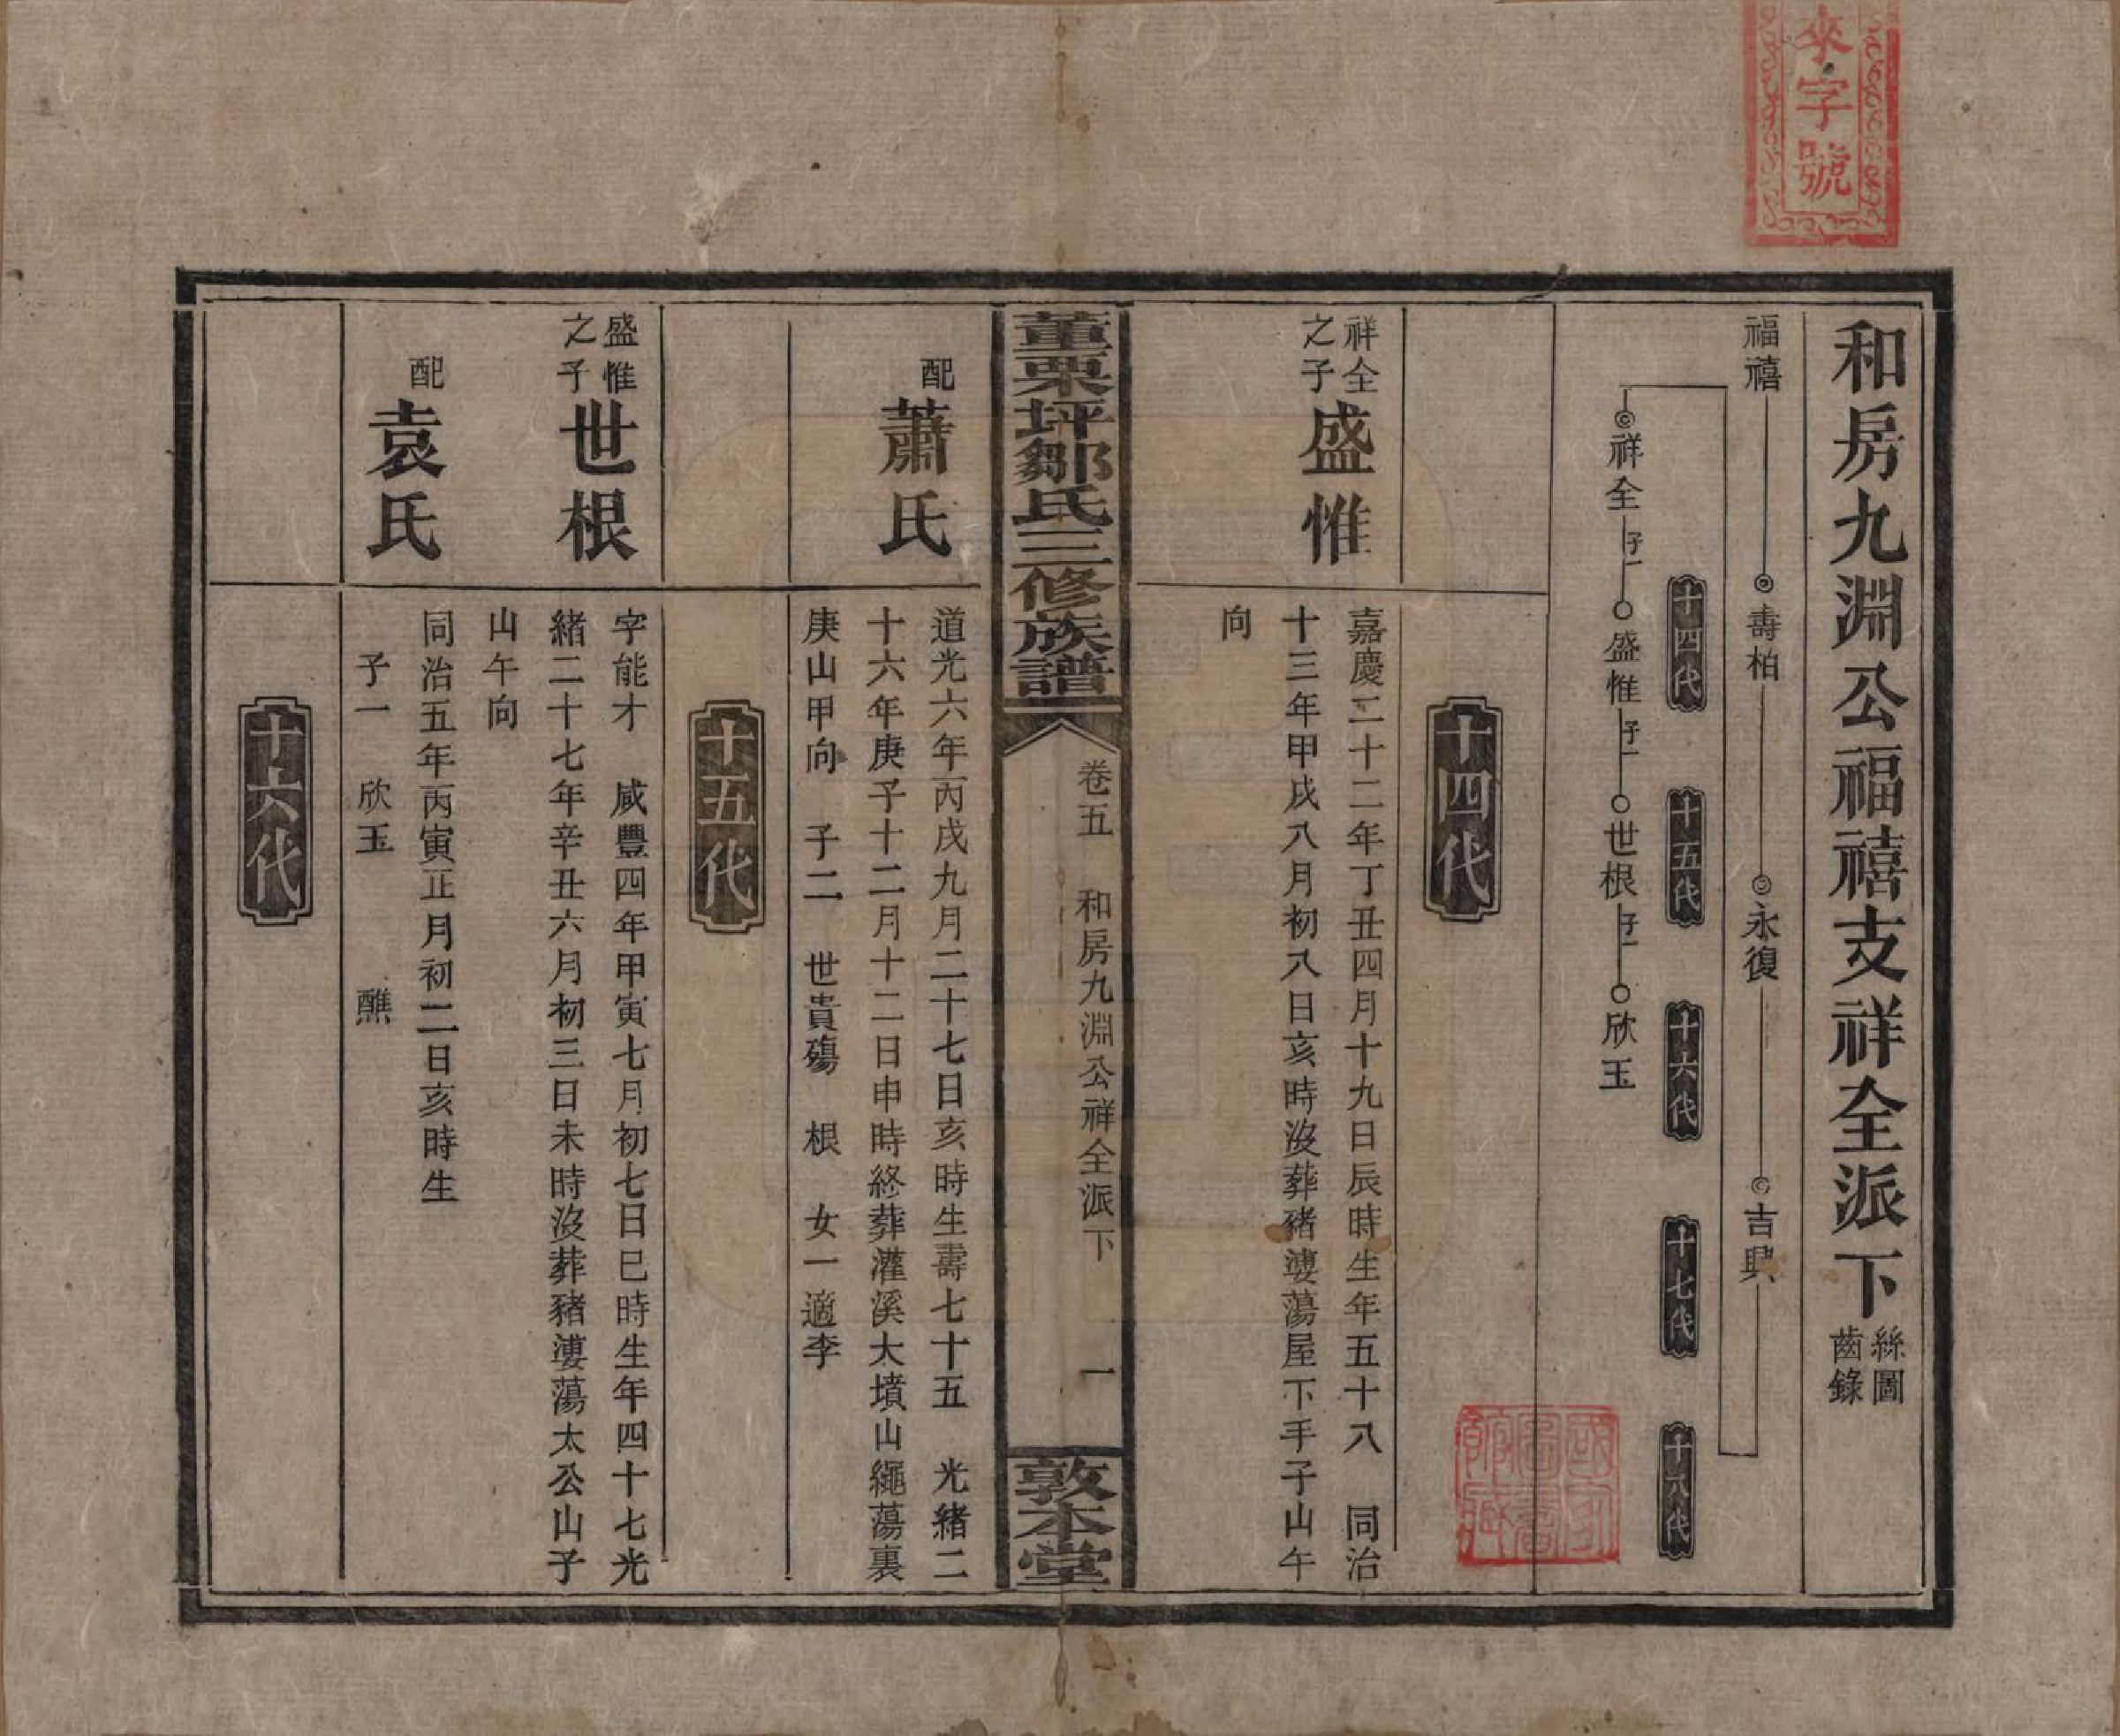 來字號
和房九淵公福禧支祥全派下
絲圖
齒錄
福禧
壽柏
永復
吉興
十四代
十五代
十六代
十七代
十八代
祥全
子一
盛惟
子一
世根
子一
欣玉
國家圖書館藏
十四代
祥全
之子
盛惟
嘉慶二十二年丁丑四月十九日辰時生年五十八 同治
十三年甲戌八月初八日亥時沒葬豬漊蕩屋下手子山午
向
董栗坪鄒氏三修族譜
卷五 和房九淵公祥全派下 一
敦本堂
配
蕭氏
道光六年丙戌九月二十七日亥時生壽七十五 光緒二
十六年庚子十二月十二日申時終葬灌溪大墳山繩蕩裏
庚山甲向 子二 世貴殤 根 女一適李
十五代
盛惟
之子
世根
字能才 咸豐四年甲寅七月初七日巳時生年四十七光
緒二十七年辛丑六月初三日未時沒葬豬漊蕩太公山子
山午向
配
袁氏
同治五年丙寅正月初二日亥時生
子一 欣玉 醮
十六代